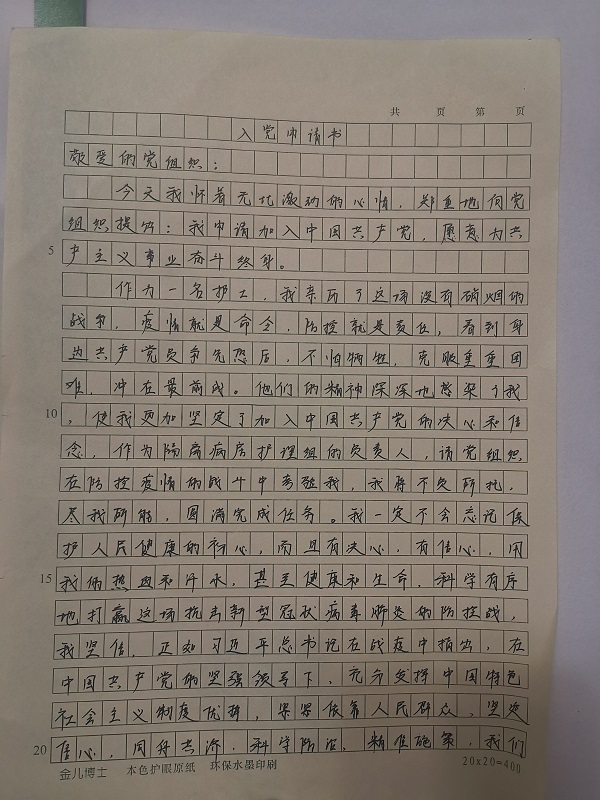 共 页 第 页
入党申请书
敬爱的党组织：
今天我怀着无比激动的心情，郑重地向党
组织提出：我申请加入中国共产党，愿意为共
5 产主义事业奋斗终身。
作为一名护士，我亲历了这场没有硝烟的
战争，疫情就是命令，防控就是责任，看到身
边共产党员争先恐后，不怕牺牲，克服重重困
难，冲在最前线。他们的精神深深地感染了我
10 ，使我更加坚定了加入中国共产党的决心和信
念，作为隔离病房护理组的负责人，请党组织
在防控疫情的战斗中考验我，我将不负所托，
尽我所能，圆满完成任务。我一定不会忘记保
护人民健康的初心，而且有决心，有信心，用
15 我俩热血和汗水，甚至健康和生命，科学有序
地打赢这场抗击新型冠状病毒肺炎的防控战，
我坚信，正如习近平总书记在战疫中指出，在
中国共产党的坚强领导下，充分发挥中国特色
社会主义制度优势，紧紧依靠人民群众，坚定
20 信心，同舟共济，科学防治，精准施策，我们
金儿博士 本色护眼原纸 环保水墨印刷 20x20=400